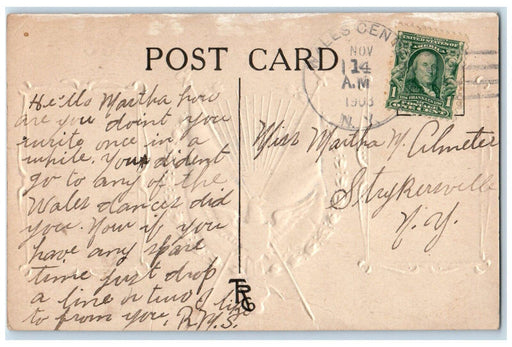 POST CARD
WALES CENTER
NOV
14
A.M
1908
N.Y.
UNITED STATES OF AMERICA
1
Hello Martha how
are you don't you
write once in a
while. You dident
go to any of the
Wales dances did
you. Now if you
have any spare
time just drop
a line or two I like
to from you, R.M.S.
Miss Martha M. Almeter
Strykersville
N.Y.